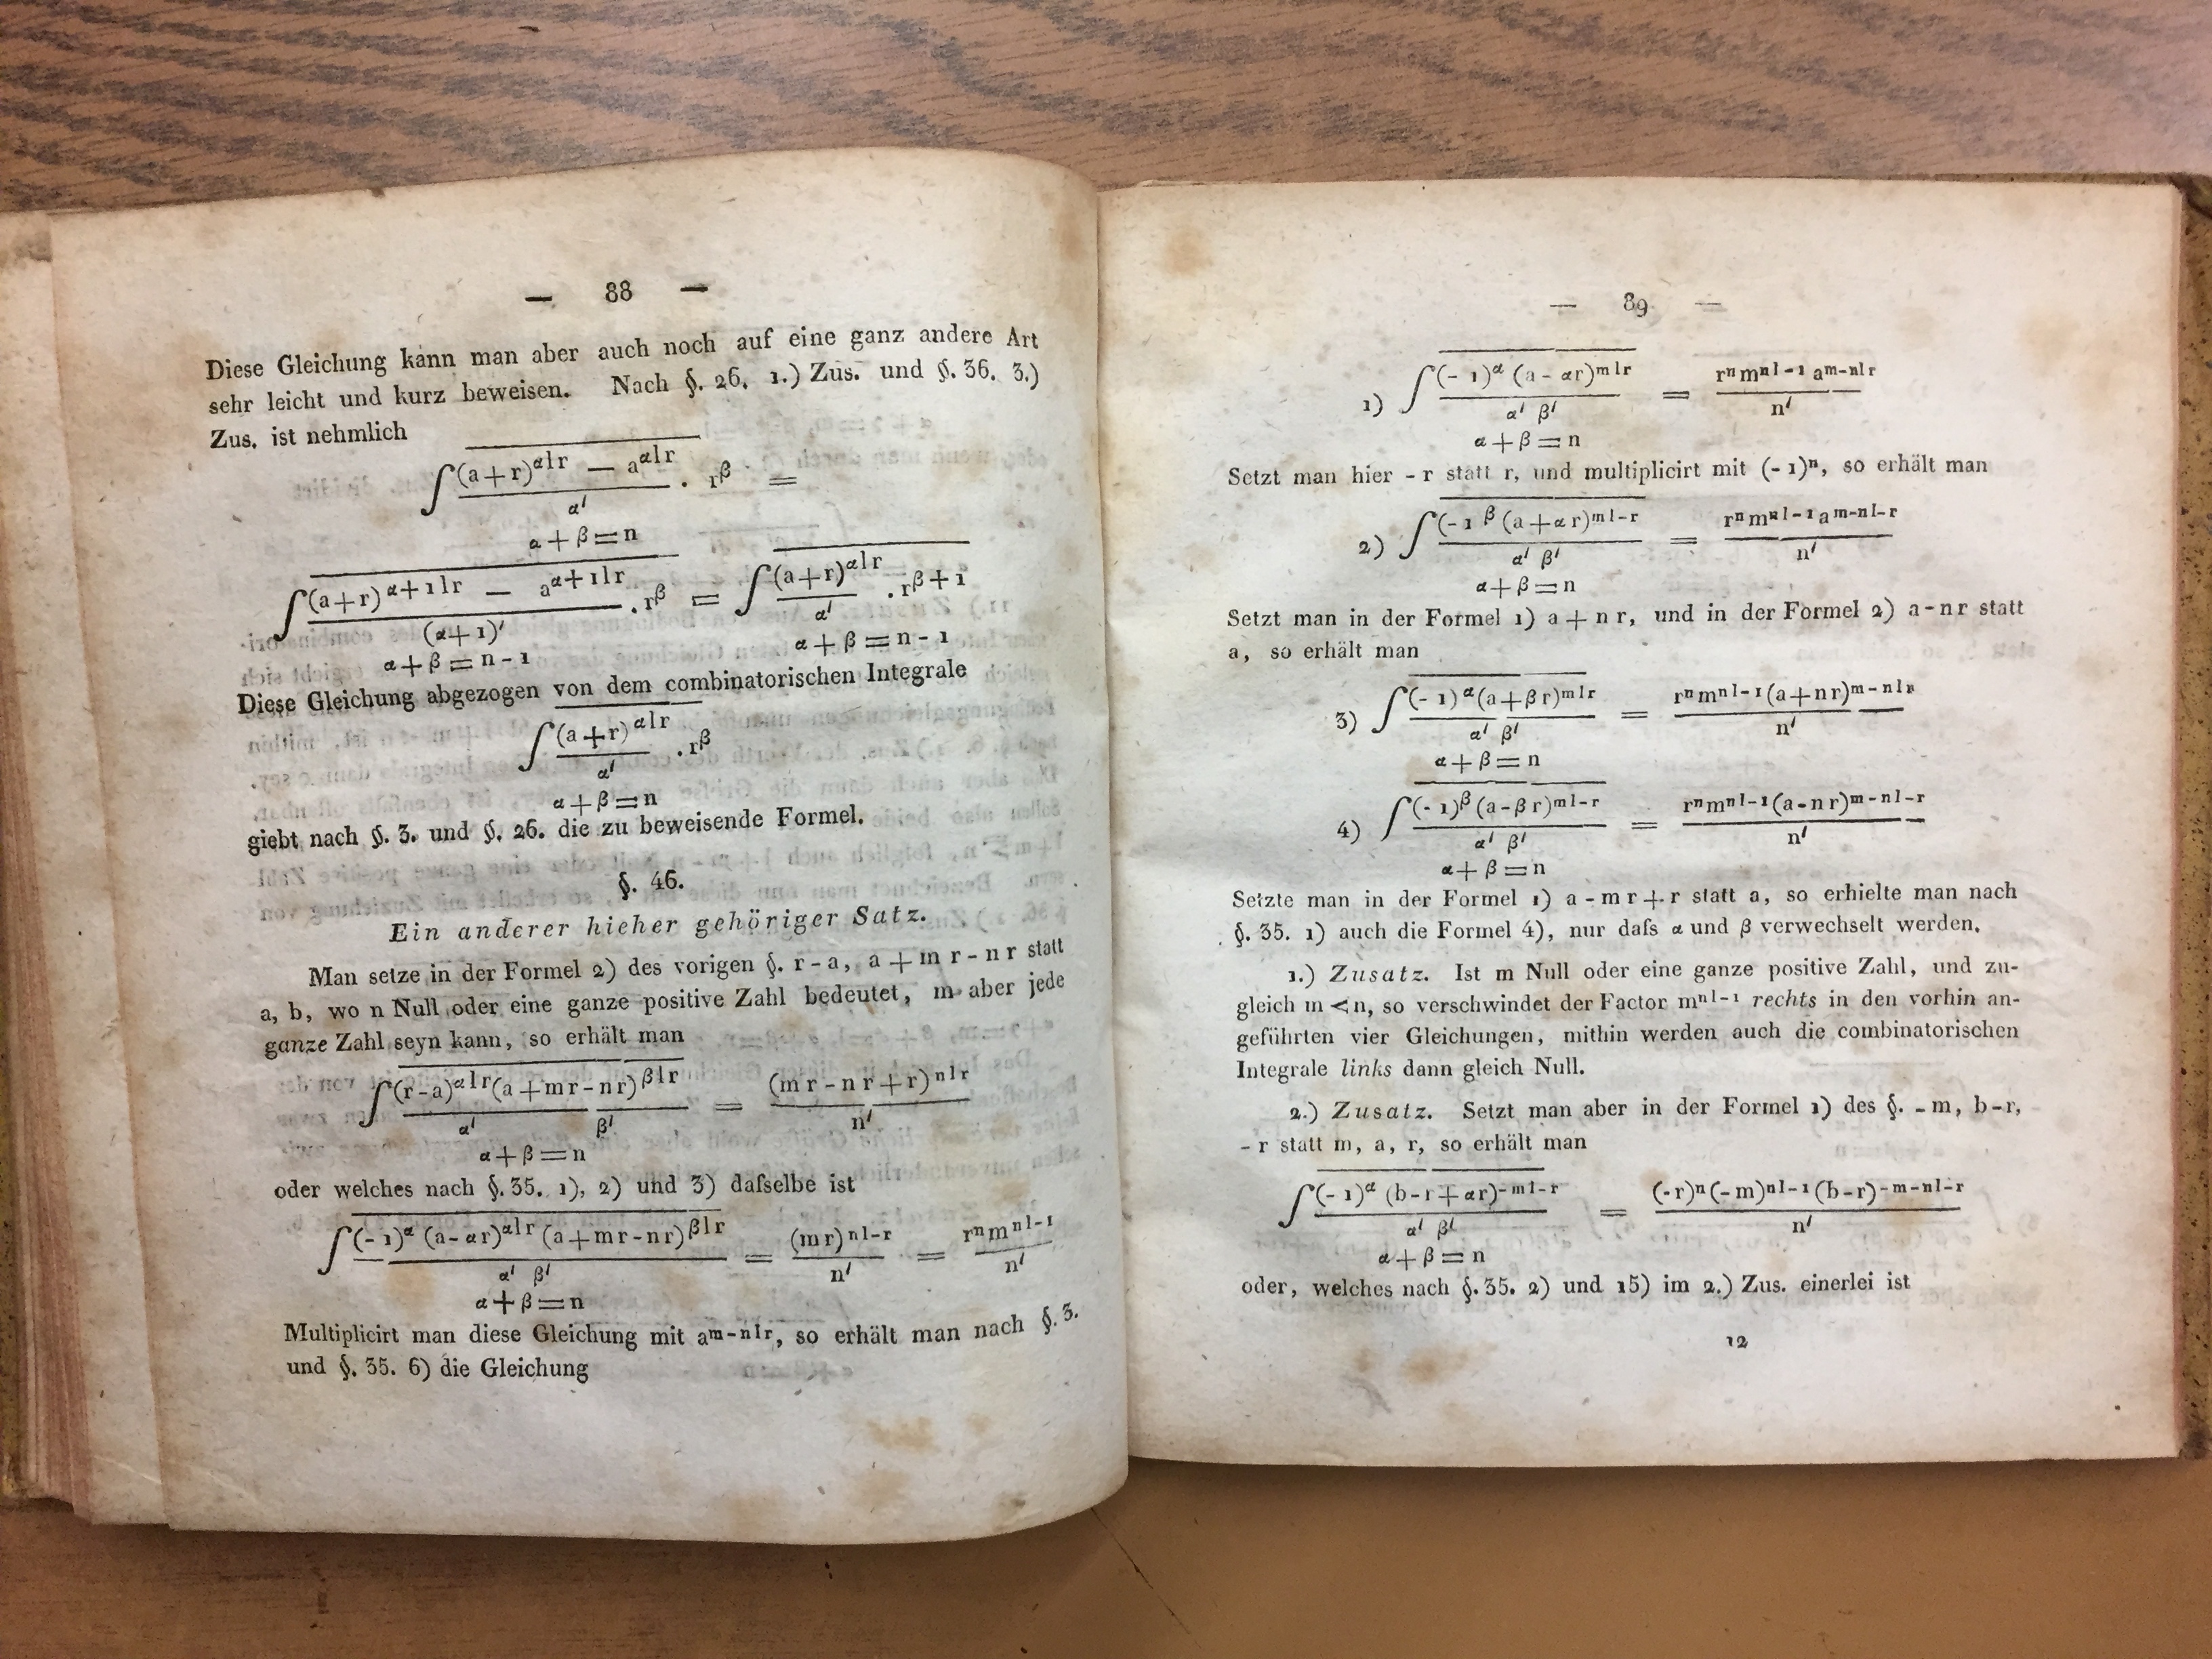 — 88 —
Diese Gleichung kann man aber auch noch auf eine ganz andere Art
sehr leicht und kurz beweisen. Nach §. 26. 1.) Zus. und §. 36. 3.)
Zus. ist nehmlich
∫ (a+r)^{α|r} — a^{α|r} / α′ . r^β =
α+β=n
∫ (a+r)^{α+1|r} — a^{α+1|r} / (α+1)′ . r^β = ∫ (a+r)^{α|r} / α′ . r^{β+1}
α+β=n-1 α+β=n-1
Diese Gleichung abgezogen von dem combinatorischen Integrale
∫ (a+r)^{α|r} / α′ . r^β
α+β=n
giebt nach §. 3. und §. 26. die zu beweisende Formel.
§. 46.
Ein anderer hieher gehöriger Satz.
Man setze in der Formel 2) des vorigen §. r-a, a+mr-nr statt
a, b, wo n Null oder eine ganze positive Zahl bedeutet, m aber jede
ganze Zahl seyn kann, so erhält man
∫ (r-a)^{α|r} (a+mr-nr)^{β|r} / α′ β′ = (mr-nr+r)^{n|r} / n′
α+β=n
oder welches nach §. 35. 1), 2) und 3) daſselbe ist
∫ (-1)^α (a-αr)^{α|r} (a+mr-nr)^{β|r} / α′ β′ = (mr)^{n|-r} / n′ = r^n m^{n|-1} / n′
α+β=n
Multiplicirt man diese Gleichung mit a^{m-n|r}, so erhält man nach §. 3.
und §. 35. 6) die Gleichung
— 89 —
1) ∫ (-1)^α (a-αr)^{m|r} / α′ β′ = r^n m^{n|-1} a^{m-n|r} / n′
α+β=n
Setzt man hier -r statt r, und multiplicirt mit (-1)^n, so erhält man
2) ∫ (-1^β (a+αr)^{m|-r} / α′ β′ = r^n m^{n|-1} a^{m-n|-r} / n′
α+β=n
Setzt man in der Formel 1) a+nr, und in der Formel 2) a-nr statt
a, so erhält man
3) ∫ (-1)^α (a+βr)^{m|r} / α′ β′ = r^n m^{n|-1} (a+nr)^{m-n|r} / n′
α+β=n
4) ∫ (-1)^β (a-βr)^{m|-r} / α′ β′ = r^n m^{n|-1} (a-nr)^{m-n|-r} / n′
α+β=n
Setzte man in der Formel 1) a-mr+r statt a, so erhielte man nach
§. 35. 1) auch die Formel 4), nur daſs α und β verwechselt werden.
1.) Zusatz. Ist m Null oder eine ganze positive Zahl, und zu-
gleich m < n, so verschwindet der Factor m^{n|-1} rechts in den vorhin an-
geführten vier Gleichungen, mithin werden auch die combinatorischen
Integrale links dann gleich Null.
2.) Zusatz. Setzt man aber in der Formel 1) des §. -m, b-r,
-r statt m, a, r, so erhält man
∫ (-1)^α (b-r+αr)^{-m|-r} / α′ β′ = (-r)^n (-m)^{n|-1} (b-r)^{-m-n|-r} / n′
α+β=n
oder, welches nach §. 35. 2) und 15) im 2.) Zus. einerlei ist
12